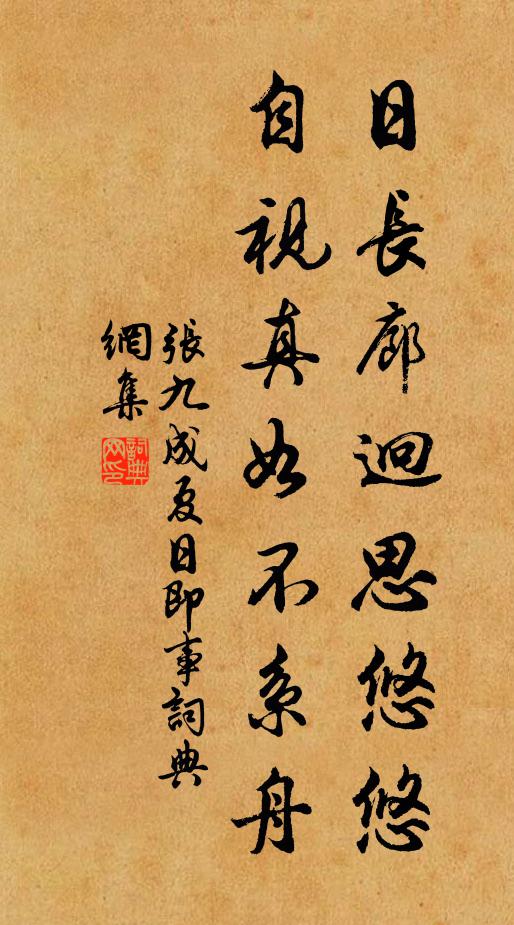 日長廊迴思悠悠
自視真如不系舟
張九成夏日即事詞典
網集
詞典
网印